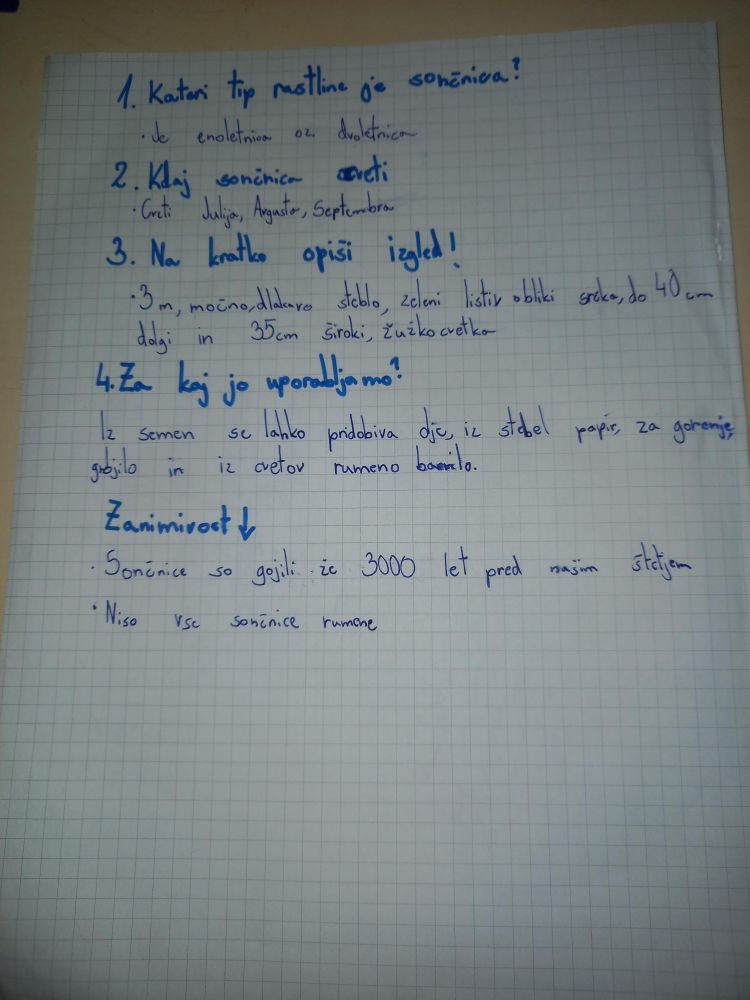 1. Kateri tip rastline je sončnica?
· Je enoletnica oz. dvoletnica
2. Kdaj sončnica cveti
· Cveti Julija, Avgusta, Septembra
3. Na kratko opiši izgled!
· 3 m, močno, dlakavo steblo, zeleni listi v obliki srčka, do 40 cm
dolgi in 35cm široki, žužkocvetka
4. Za kaj jo uporabljamo?
Iz semen se lahko pridobiva olje, iz stebel papir, za gorenje,
gnojilo in iz cvetov rumeno barvilo.
Zanimivost ↓
· Sončnice so gojili že 3000 let pred našim štetjem
· Niso vse sončnice rumene